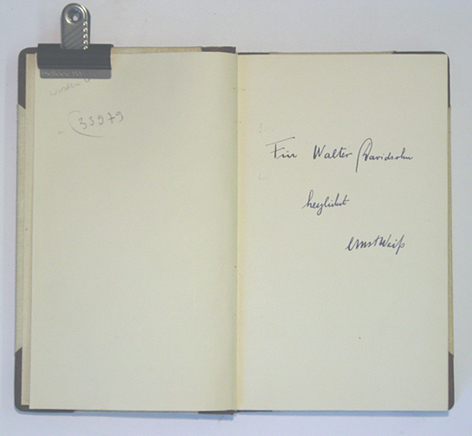 33979
Für Walter Davidsohn
herzlichst
Ernst Weiß